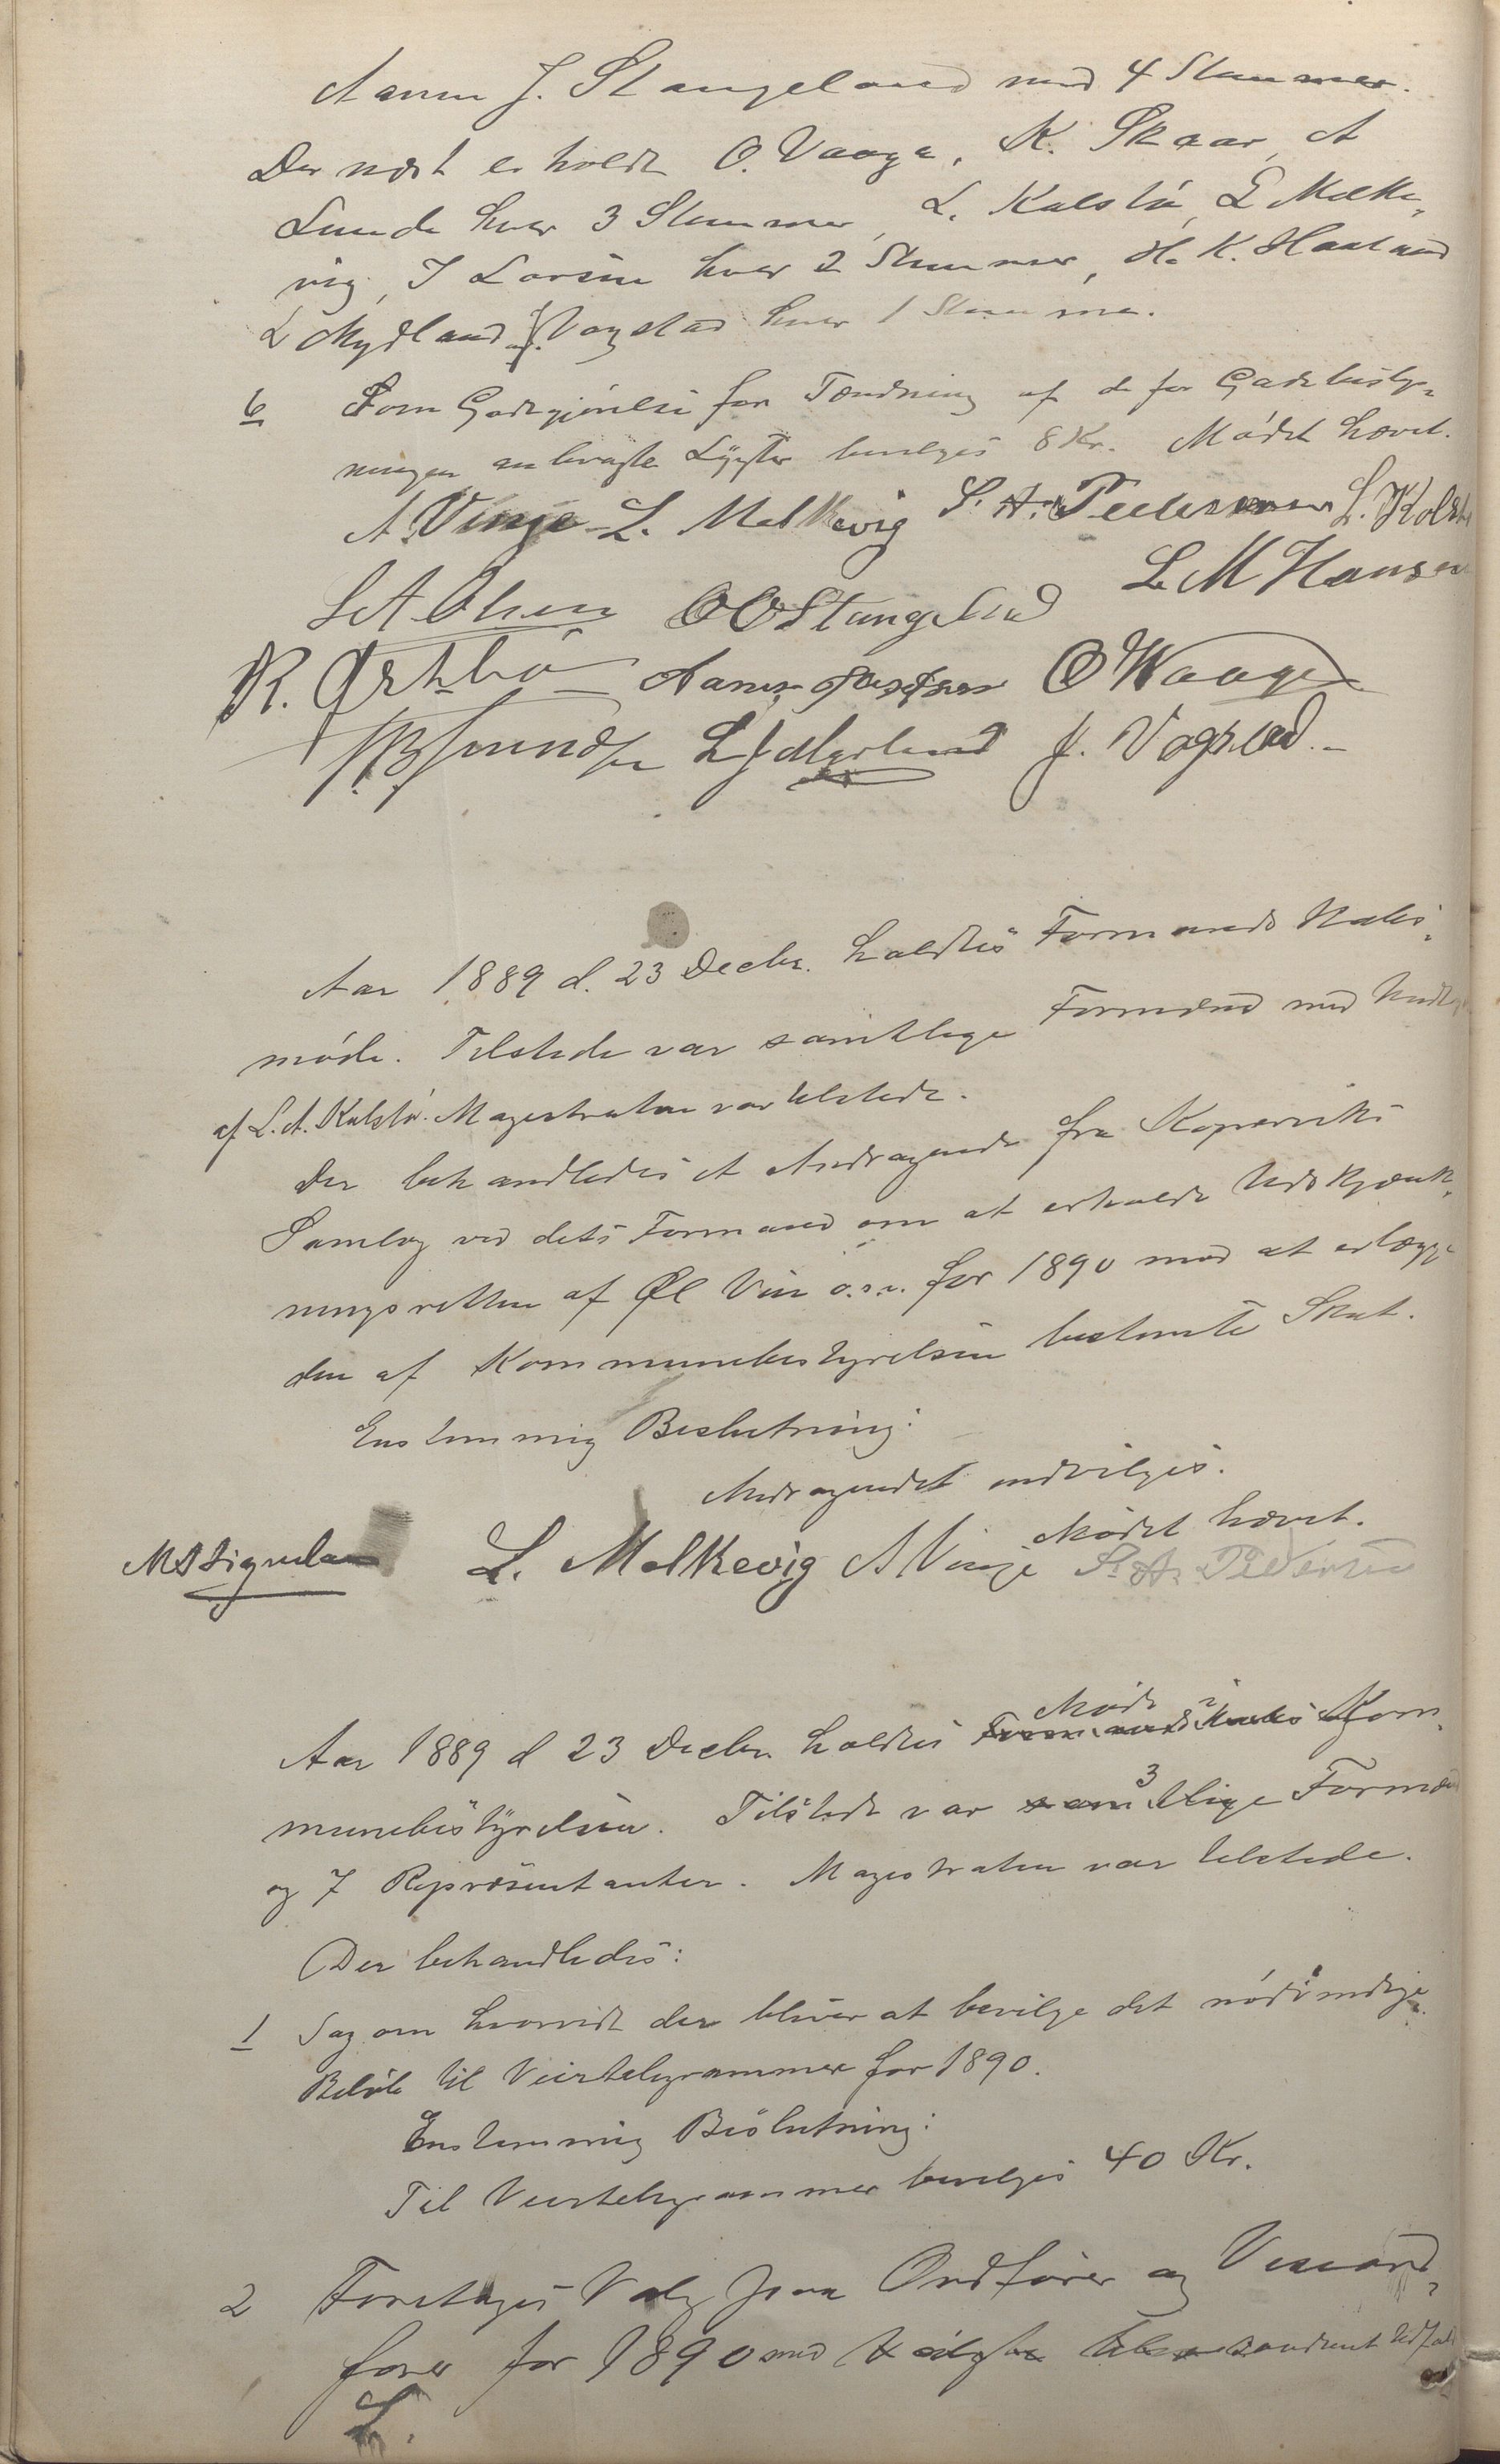 Aanen J. Stangeland med 4 Stemmer.
Dernæst erholdt O. Vaage, K. Skaar, A
Lunde hver 3 Stemmer, L. Kalstø, L Melke„
vig, J Larsen hver 2 Stemmer, H. K. Haaland
L Mydland J. Vagstad hver 1 Stemme.
6 Som Godtgjørelse for Tændning af de for Gadebelys„
ningen anbragte Lygter bevilges 8 Kr. Mødet hævet.
A Vinje L. Melkevig S. A. Pedersen L. Kolstø
S A Olsen O O Stangeland L M Hansen
R. Østbø Aanen O Waage
L J Mydland J. Vagstad
Aar 1889 d. 23 Decbr. holdtes Formandskabs„
møde. Tilstede var samtlige Formænd med Undt
af L. A. Kalstø. Magistraten var tilstede.
Der behandledes et Andragende fra Kopervik
Samlag ved dets Formand om at erholde Udskjænk„
ningsretten af Øl Vin o.s.v. for 1890 mod at erlægge
den af Kommunebestyrelsen bestemte Skat.
Enstemmig Beslutning:
Andragendet indvilges.
Mødet hævet.
L. Melkevig A Vinje S. A. Pedersen
Aar 1889 d 23 Decbr. holdtes Formandskabs Møde i Kom„
munebestyrelsen. Tilstede var samtlige 3 Formænd
og 7 Repræsentanter. Magistraten var tilstede.
Der behandledes:
1 Sag om hvorvidt der bliver at bevilge det nødvendige
Beløb til Veirtelegrammer for 1890.
Enstemmig Beslutning:
Til Veirtelegrammer bevilges 40 Kr.
2 Foretages Valg paa Ordfører og Viceord„
fører for 1890 med saadant Udfald
L.